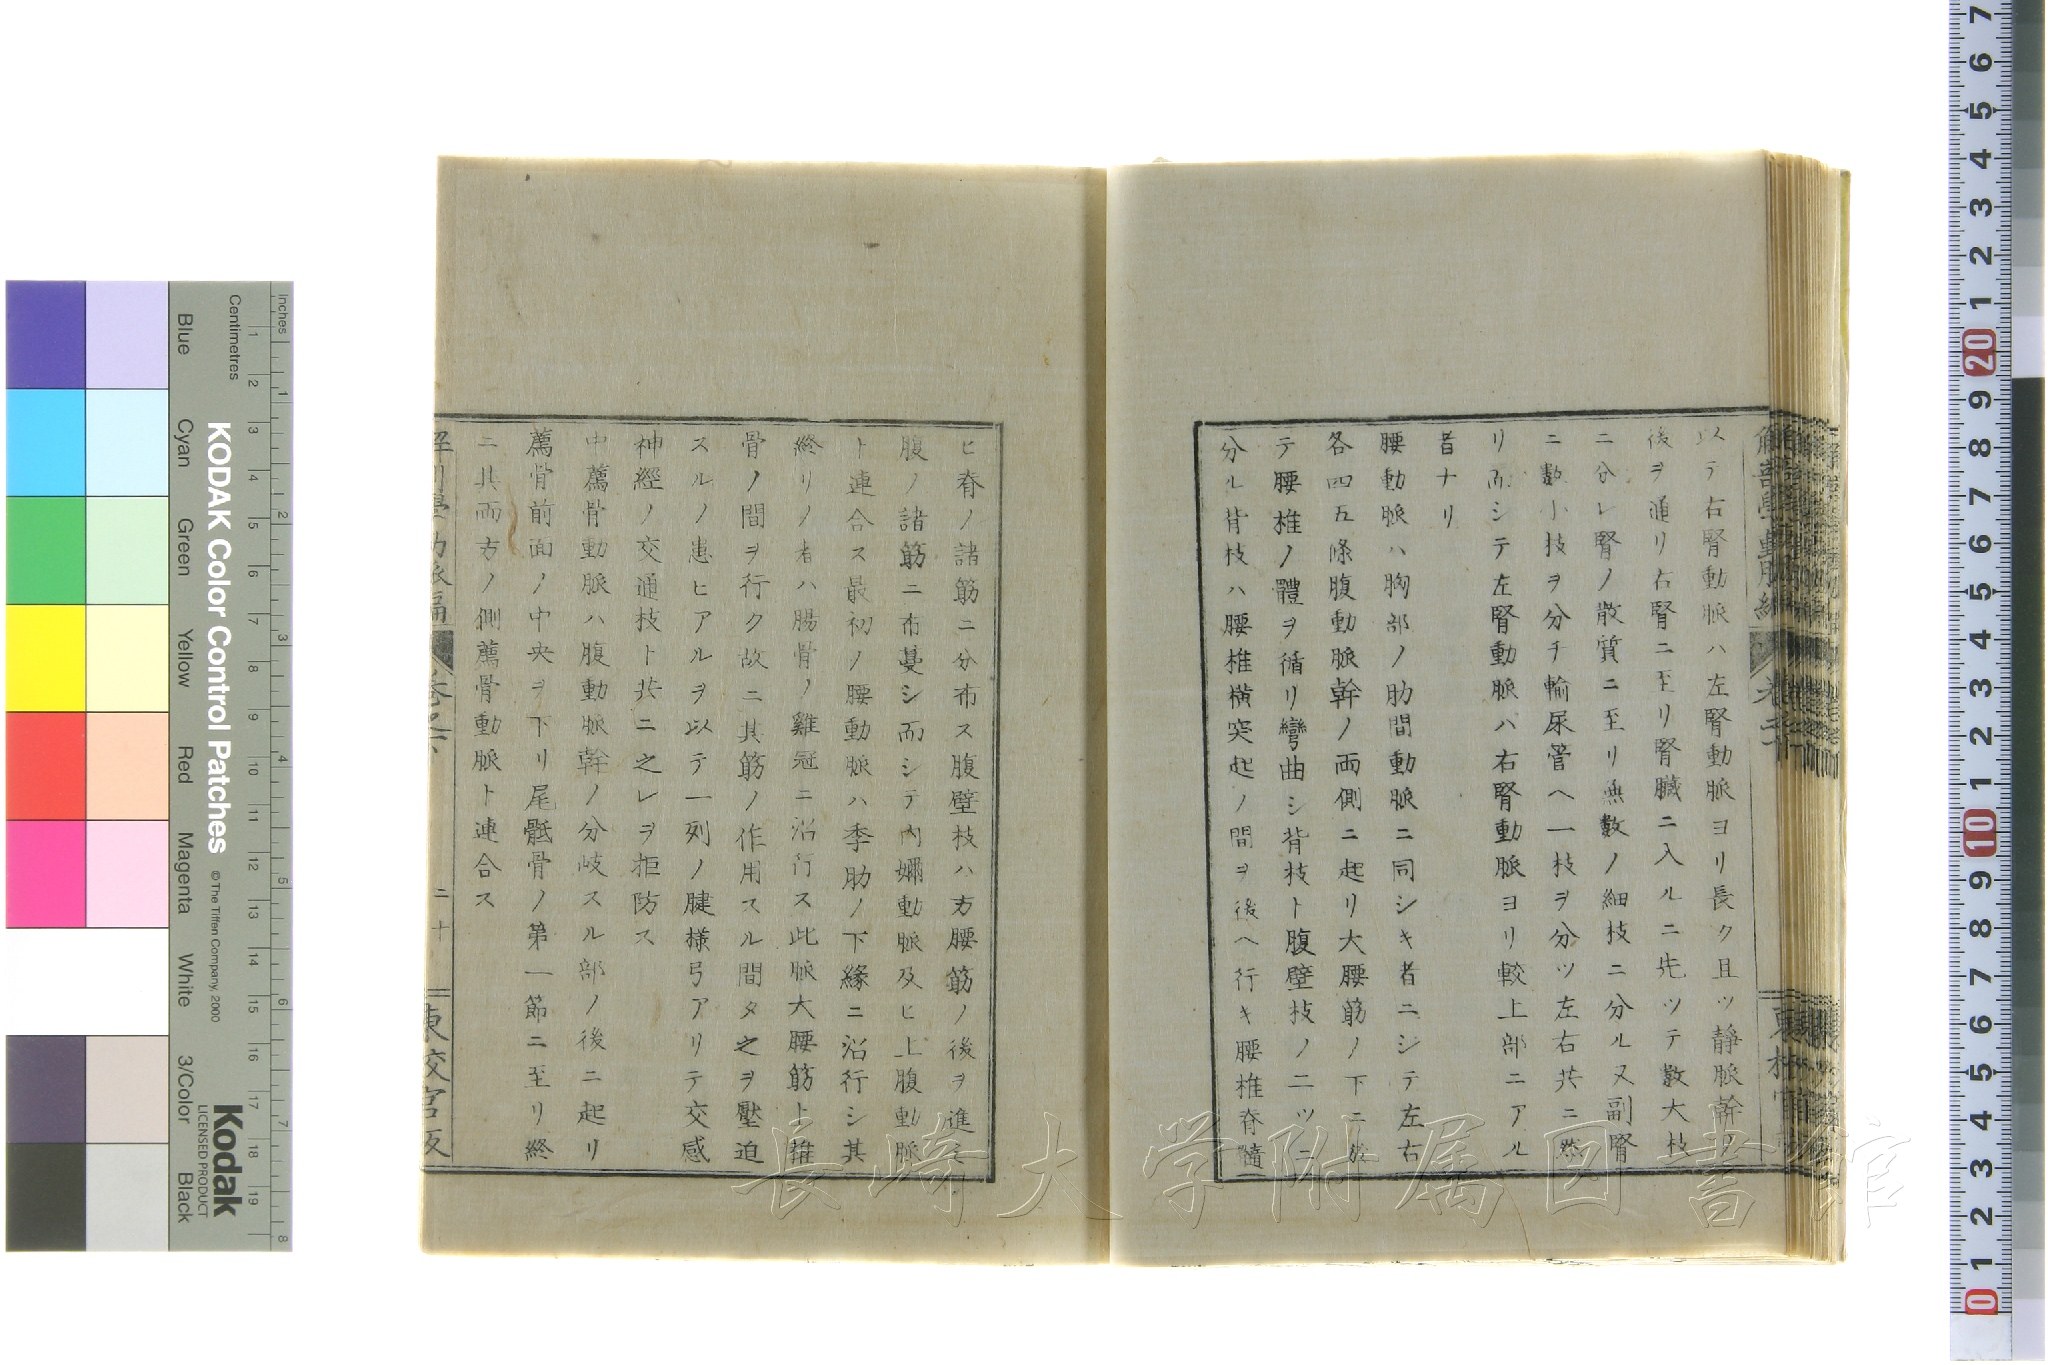 以テ右腎動脈ハ左腎動脈ヨリ長ク且ツ靜脈幹ノ
後ヲ通リ右腎ニ至リ腎臓ニ入ルニ先ツテ數大枝
ニ分レ腎ノ散質ニ至リ無數ノ細枝ニ分ル又副腎
ニ數小枝ヲ分チ輸尿管ヘ一枝ヲ分ツ左右共ニ然
リ而シテ左腎動脈ハ右腎動脈ヨリ較上部ニアル
者ナリ
腰動脈ハ胸部ノ肋間動脈ニ同シキ者ニシテ左右
各四五條腹動脈幹ノ両側ニ起リ大腰筋ノ下ニ於
テ腰椎ノ體ヲ循リ彎曲シ背枝ト腹壁枝ノ二ツニ
分ル背枝ハ腰椎横突起ノ間ヲ後ヘ行キ腰椎脊髓
ヒ脊ノ諸筋ニ分布ス腹壁枝ハ方腰筋ノ後ヲ進ミ
腹ノ諸筋ニ布蔓シ而シテ内嬭動脈及ヒ上腹動脈
ト連合ス最初ノ腰動脈ハ季肋ノ下緣ニ沿行シ其
終リノ者ハ腸骨ノ雞冠ニ沿行ス此脈大腰筋ト椎
骨ノ間ヲ行ク故ニ其筋ノ作用スル間タ之ヲ壓迫
スルノ患ヒアルヲ以テ一列ノ腱様弓アリテ交感
神經ノ交通枝ト共ニ之レヲ拒防ス
中薦骨動脈ハ腹動脈幹ノ分岐スル部ノ後ニ起リ
薦骨前面ノ中央ヲ下リ尾骶骨ノ第一節ニ至リ終
ニ其両方ノ側薦骨動脈ト連合ス
二十
長崎大学附属図書館
KODAK Color Control Patches
© The Tiffen Company, 2000
Kodak
LICENSED PRODUCT
Inches
Centimetres
Blue
Cyan
Green
Yellow
Red
Magenta
White
3/Color
Black